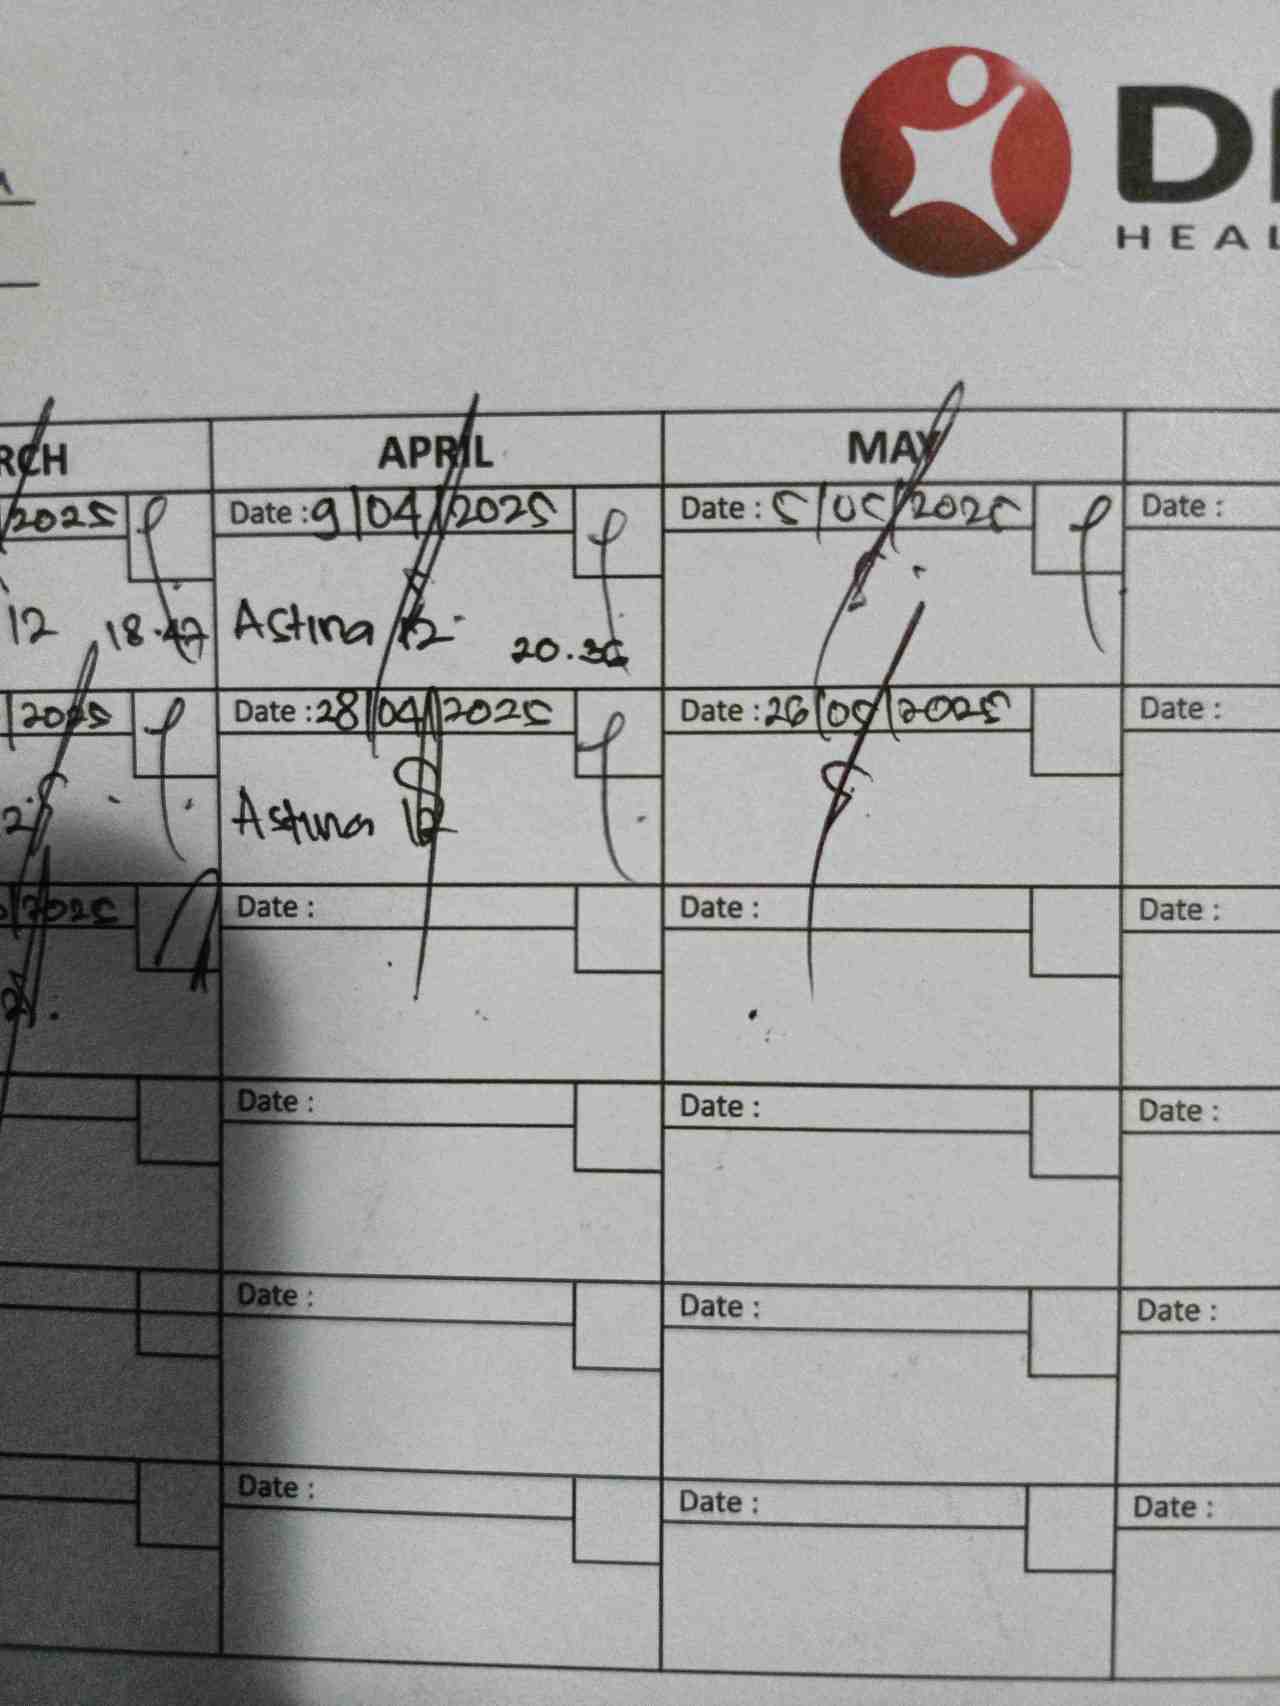 HEAL
RCH APRIL MAY
2025 Date : 9/04/2025 Date : 5/05/2025 Date :
12 18.47 Astina 12 20.36
2025 Date : 28/04/2025 Date : 26/05/2025 Date :
Astina 12
2025 Date : Date : Date :
Date : Date : Date :
Date : Date : Date :
Date : Date : Date :